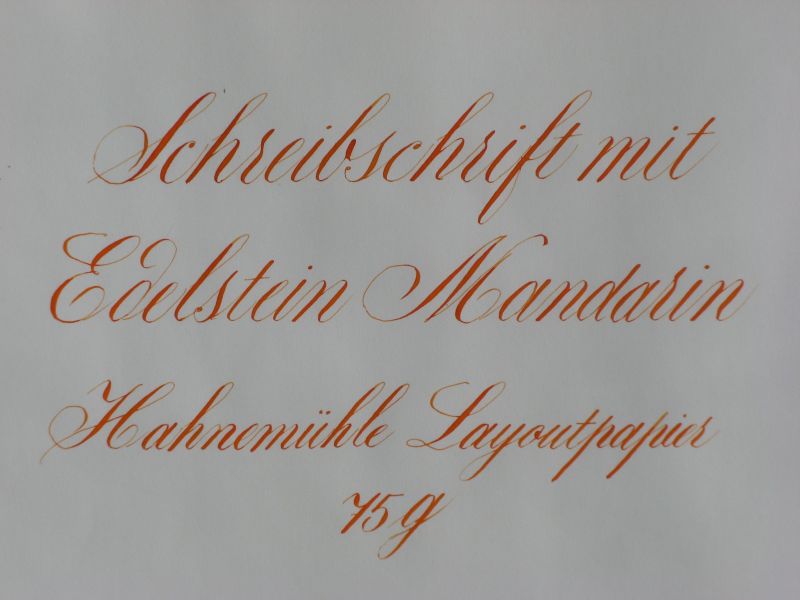 Schreibschrift mit
Edelstein Mandarin
Hahnemühle Layoutpapier
75g